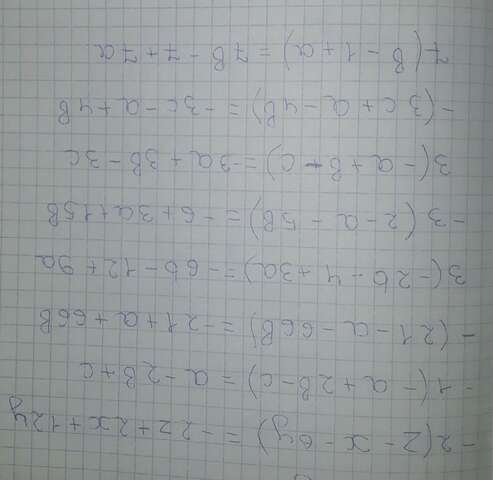 -2(z - x - 6y) = -2z + 2x + 12y
-1(-a + 2b - c) = a - 2b + c
-(21 - a - 66b) = -21 + a + 66b
3(-2b - 4 + 3a) = -6b - 12 + 9a
-3(2 - a - 5b) = -6 + 3a + 15b
3(-a + b - c) = -3a + 3b - 3c
-(3c + a - 4b) = -3c - a + 4b
7(b - 1 + a) = 7b - 7 + 7a